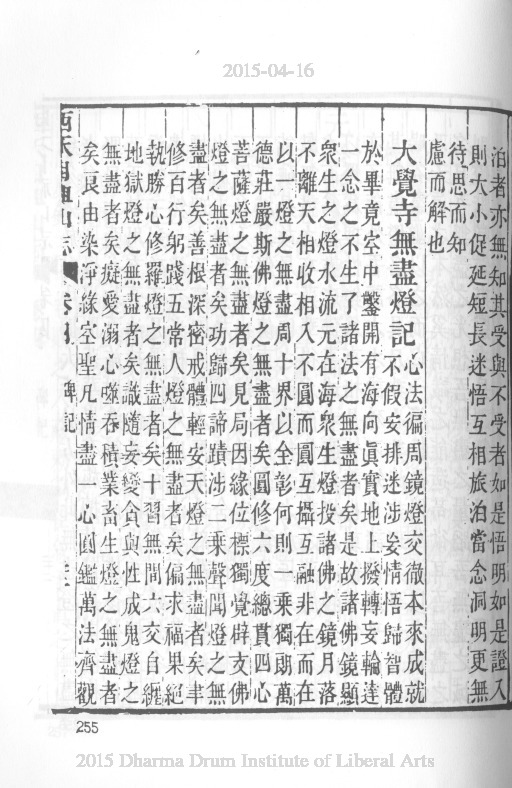 2015-04-16
泊者亦無知其受與不受者如是悟明如是證入
則大小促延短長迷悟互相旅泊當念洞明更無
待思而知
慮而解也
大覺寺無盡燈記
心法徧周鏡燈交徹本來成就
不假安排迷涉妄情悟歸智體
於畢竟空中鑿開有海向眞實地上撥轉妄輪達
一念之不生了諸法之無盡者矣是故諸佛鏡顯
衆生之燈水流元在海衆生燈投諸佛之鏡月落
不離天相收相入不圓而圓互攝互融非在而在
以一燈之無盡周十界以全彰何則一乘獨朗萬
德莊嚴斯佛燈之無盡者矣圓修六度總貫四心
菩薩燈之無盡者矣見局因緣位標獨覺辟支佛
燈之無盡者矣功歸四諦蹟涉二乘聲聞燈之無
盡者矣善根深密戒體輕安天燈之無盡者矣聿
修百行躬踐五常人燈之無盡者矣偏求福果絕
執勝心修羅燈之無盡者矣十習無間六交自纏
地獄燈之無盡者矣識隨妄變貪與性成鬼燈之
無盡者矣癡愛溺心噬吞積業畜生燈之無盡者
矣良由染淨緣空聖凡情盡一心圓鑑萬法齊觀
西天目祖山志 卷四 碑記
255
2015 Dharma Drum Institute of Liberal Arts